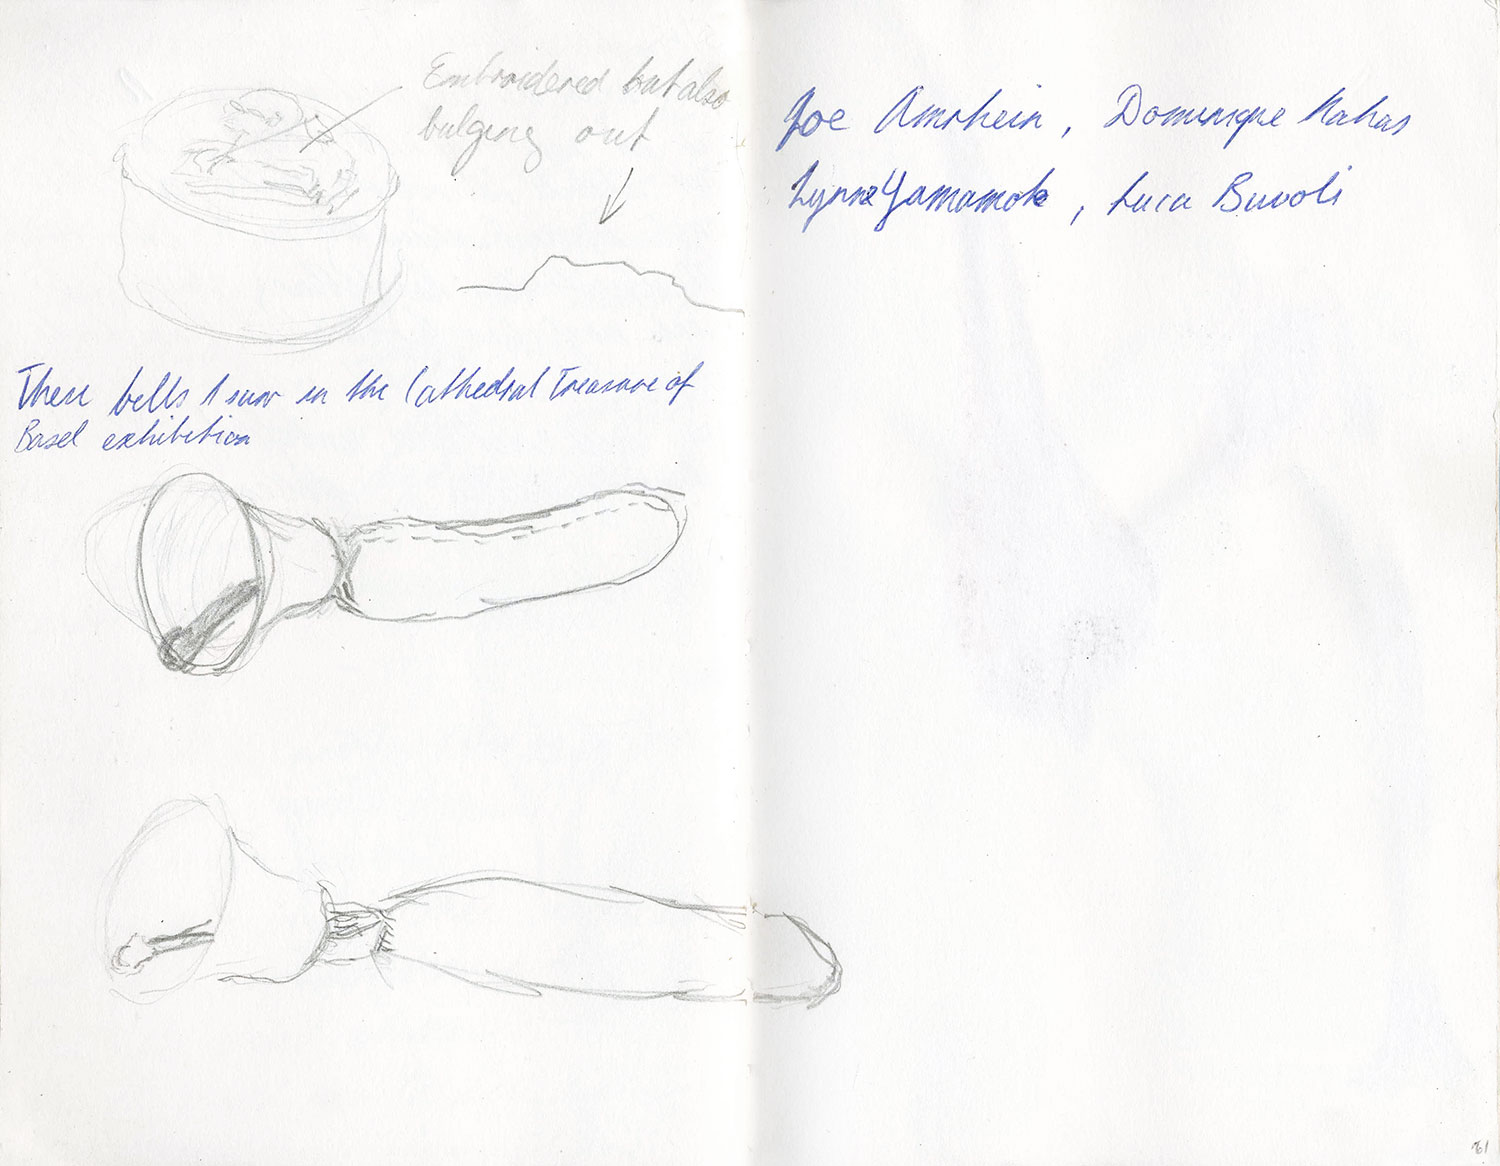 Embroidered but also
bulging out
These bells I saw in the Cathedral Treasure of
Basel exhibition
Joe Amrhein, Dominique Nahas
Lynne Yamamoto, Luca Buvoli
61